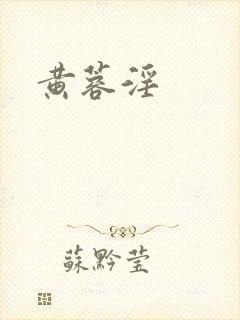 黄蓉淫
蘇黔莹